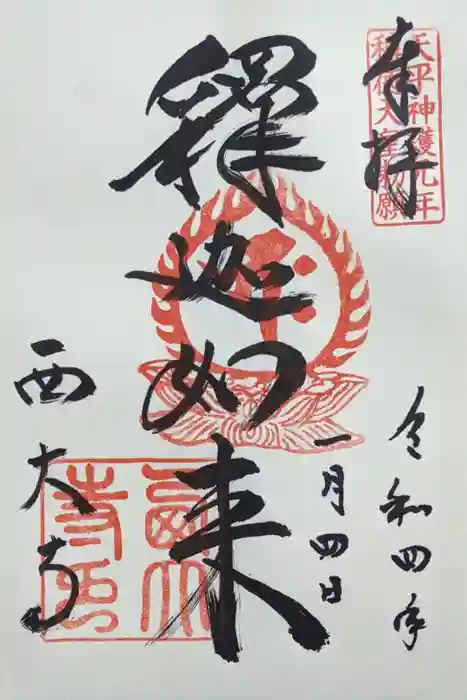 奉拝
天平神護元年
称徳天皇勅願
令和四年
一月四日
釋迦如来
西大寺